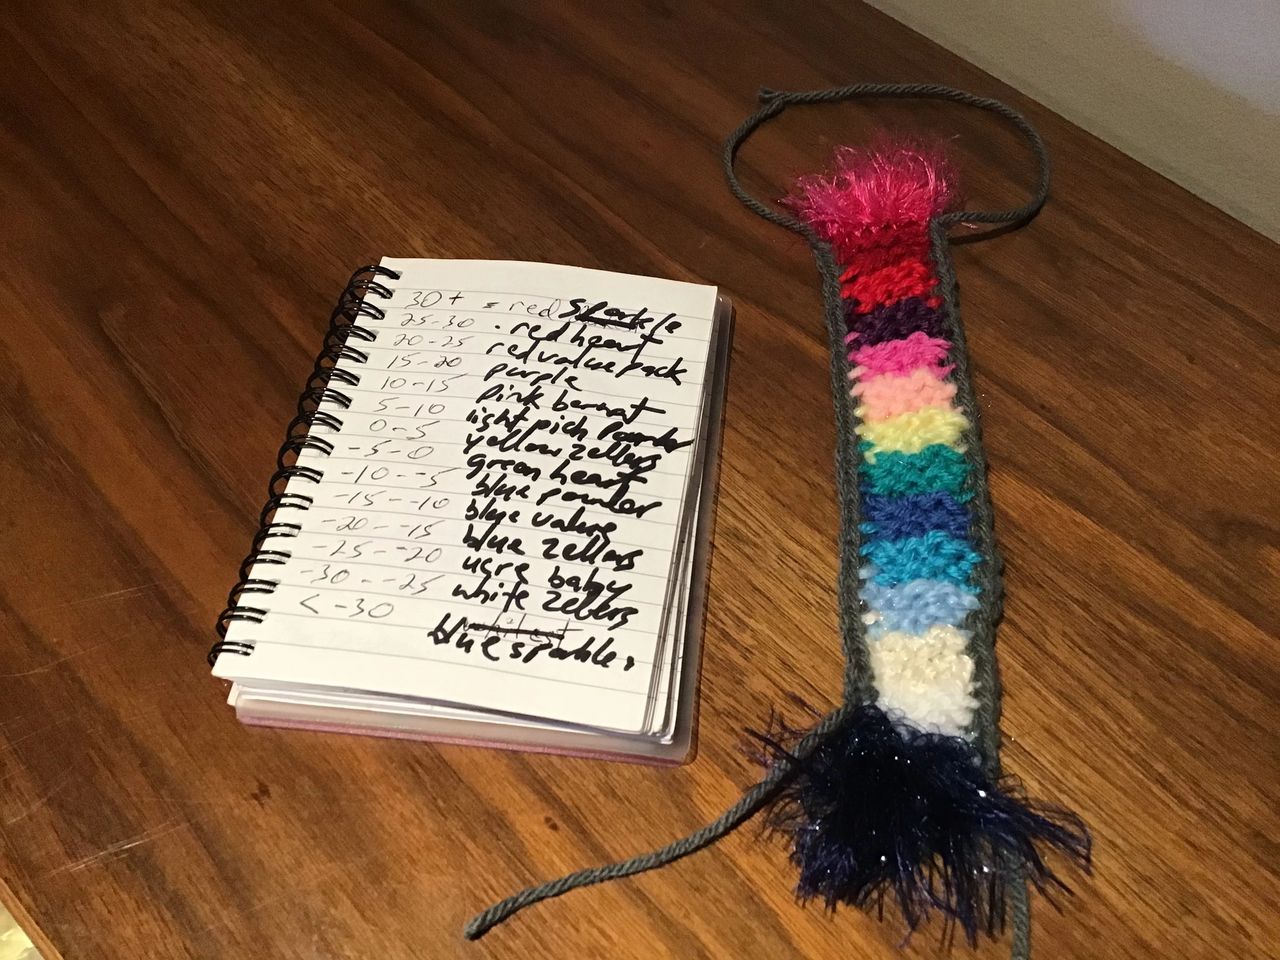 30+ = red sparkle
25-30 . red heart
20-25 red value pack
15-20 purple
10-15 pink bernat
5-10 light pich pounder
0-5 yellow zellers
-5-0 green heart
-10--5 blue pounder
-15--10 blue value
-20--15 blue zellers
-25--20 baby
-30--25 white zellers
< -30
blue sparkle